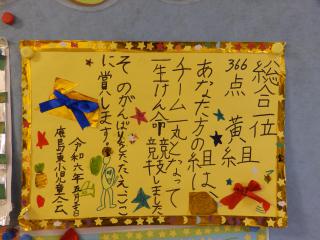 総合一位
366点 黄組
あなた方の組は、
チーム一丸となって
一生けん命競技しました
そのがんばりをたたえここ
に賞します
令和六年五月吉日
鹿島東小児童会